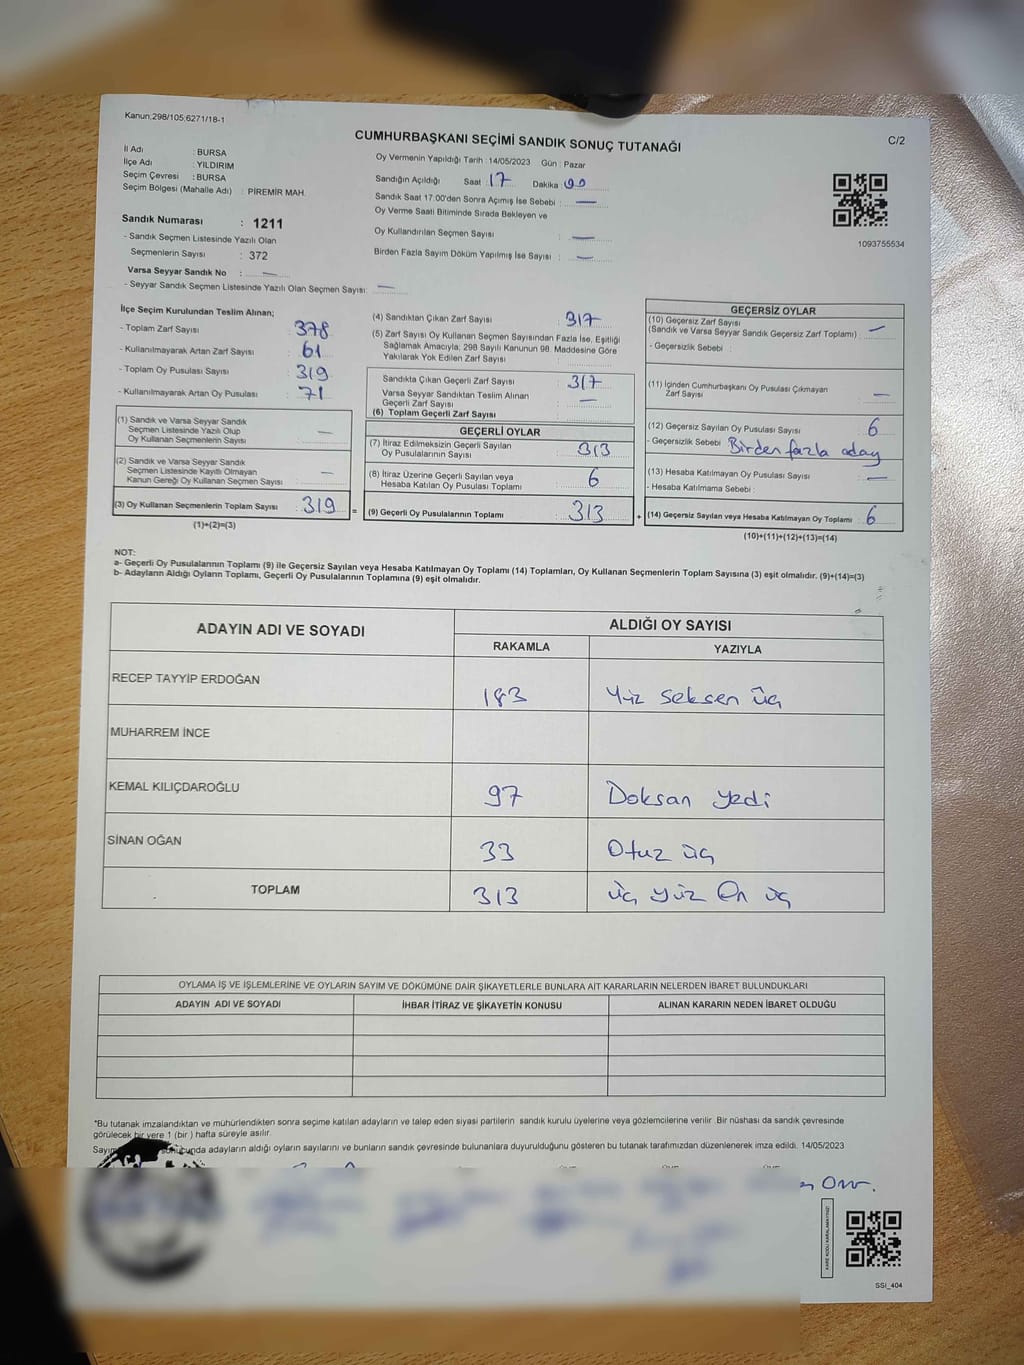 Kanun:298/105;6271/18-1
CUMHURBAŞKANI SEÇİMİ SANDIK SONUÇ TUTANAĞI
C/2
İl Adı : BURSA
İlçe Adı : YILDIRIM
Seçim Çevresi : BURSA
Seçim Bölgesi (Mahalle Adı) : PİREMİR MAH.
Sandık Numarası : 1211
- Sandık Seçmen Listesinde Yazılı Olan
Seçmenlerin Sayısı : 372
Varsa Seyyar Sandık No : —
- Seyyar Sandık Seçmen Listesinde Yazılı Olan Seçmen Sayısı: —
Oy Vermenin Yapıldığı Tarih : 14/05/2023 Gün : Pazar
Sandığın Açıldığı Saat : 17 Dakika : 00
Sandık Saat 17.00'den Sonra Açımış İse Sebebi : —
Oy Verme Saati Bitiminde Sırada Bekleyen ve
Oy Kullandırılan Seçmen Sayısı : —
Birden Fazla Sayım Döküm Yapılmış İse Sayısı : —
1093755534
İlçe Seçim Kurulundan Teslim Alınan;
- Toplam Zarf Sayısı : 378
- Kullanılmayarak Artan Zarf Sayısı : 61
- Toplam Oy Pusulası Sayısı : 319
- Kullanılmayarak Artan Oy Pusulası : 71
(1) Sandık ve Varsa Seyyar Sandık
Seçmen Listesinde Yazılı Olup
Oy Kullanan Seçmenlerin Sayısı : —
(2) Sandık ve Varsa Seyyar Sandık
Seçmen Listesinde Kayıtlı Olmayan
Kanun Gereği Oy Kullanan Seçmen Sayısı : —
(3) Oy Kullanan Seçmenlerin Toplam Sayısı : 319 =
(1)+(2)=(3)
(4) Sandıktan Çıkan Zarf Sayısı : 317
(5) Zarf Sayısı Oy Kullanan Seçmen Sayısından Fazla İse, Eşitliği
Sağlamak Amacıyla; 298 Sayılı Kanunun 98. Maddesine Göre
Yakılarak Yok Edilen Zarf Sayısı :
Sandıkta Çıkan Geçerli Zarf Sayısı : 317
Varsa Seyyar Sandıktan Teslim Alınan
Geçerli Zarf Sayısı : —
(6) Toplam Geçerli Zarf Sayısı :
GEÇERLİ OYLAR
(7) İtiraz Edilmeksizin Geçerli Sayılan
Oy Pusulalarının Sayısı : 313
(8) İtiraz Üzerine Geçerli Sayılan veya
Hesaba Katılan Oy Pusulası Toplamı : 6
(9) Geçerli Oy Pusulalarının Toplamı : 313 +
GEÇERSİZ OYLAR
(10) Geçersiz Zarf Sayısı
(Sandık ve Varsa Seyyar Sandık Geçersiz Zarf Toplamı) : —
- Geçersizlik Sebebi :
(11) İçinden Cumhurbaşkanı Oy Pusulası Çıkmayan
Zarf Sayısı : —
(12) Geçersiz Sayılan Oy Pusulası Sayısı : 6
- Geçersizlik Sebebi : Birden fazla aday
(13) Hesaba Katılmayan Oy Pusulası Sayısı : —
- Hesaba Katılmama Sebebi :
(14) Geçersiz Sayılan veya Hesaba Katılmayan Oy Toplamı : 6
(10)+(11)+(12)+(13)=(14)
NOT:
a- Geçerli Oy Pusulalarının Toplamı (9) ile Geçersiz Sayılan veya Hesaba Katılmayan Oy Toplamı (14) Toplamları, Oy Kullanan Seçmenlerin Toplam Sayısına (3) eşit olmalıdır. (9)+(14)=(3)
b- Adayların Aldığı Oyların Toplamı, Geçerli Oy Pusulalarının Toplamına (9) eşit olmalıdır.
ADAYIN ADI VE SOYADI
ALDIĞI OY SAYISI
RAKAMLA YAZIYLA
RECEP TAYYİP ERDOĞAN 183 Yüz seksen üç
MUHARREM İNCE
KEMAL KILIÇDAROĞLU 97 Doksan yedi
SİNAN OĞAN 33 Otuz üç
TOPLAM 313 üç yüz On üç
OYLAMA İŞ VE İŞLEMLERİNE VE OYLARIN SAYIM VE DÖKÜMÜNE DAİR ŞİKAYETLERLE BUNLARA AİT KARARLARIN NELERDEN İBARET BULUNDUKLARI
ADAYIN ADI VE SOYADI İHBAR İTİRAZ VE ŞİKAYETİN KONUSU ALINAN KARARIN NEDEN İBARET OLDUĞU
*Bu tutanak imzalandıktan ve mühürlendikten sonra seçime katılan adayların ve talep eden siyasi partilerin sandık kurulu üyelerine veya gözlemcilerine verilir. Bir nüshası da sandık çevresinde
görülecek bir yere 1 (bir) hafta süreyle asılır.
adayların aldığı oyların sayılarını ve bunların sandık çevresinde bulunanlara duyurulduğunu gösteren bu tutanak tarafımızdan düzenlenerek imza edildi. 14/05/2023
KARE KODU KARALAMAYINIZ!
SSI_404